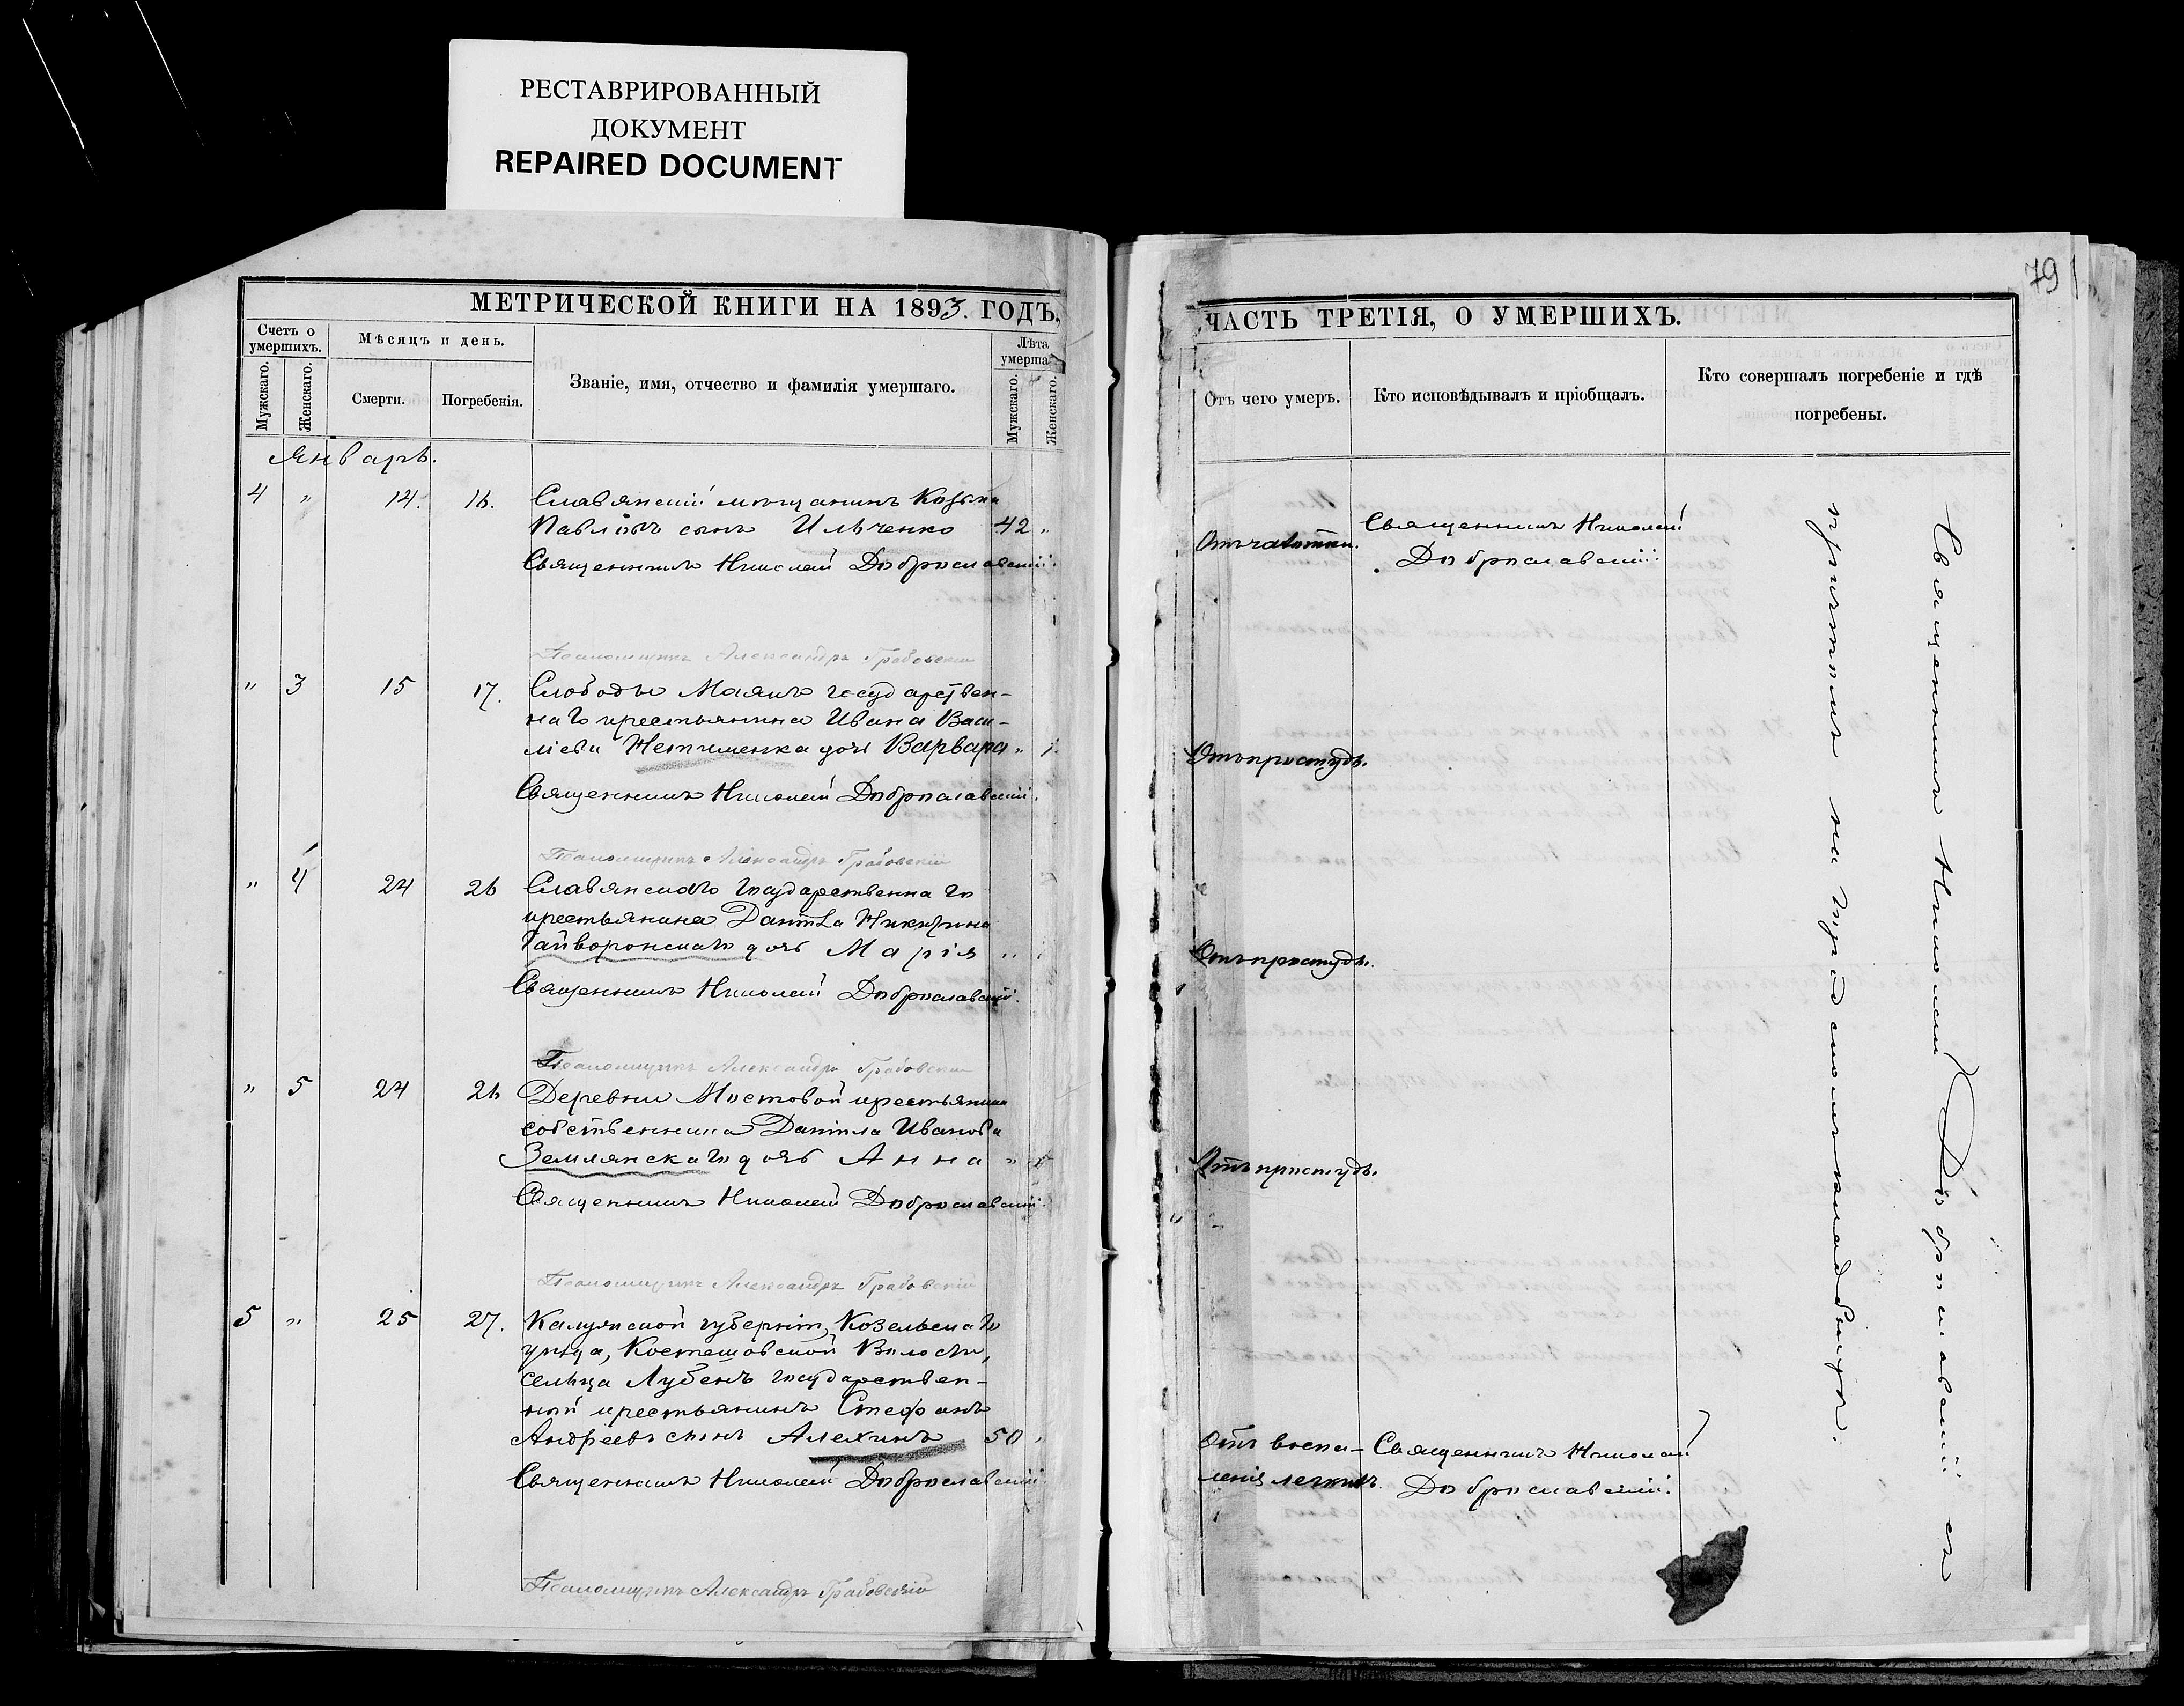 РЕСТАВРИРОВАННЫЙ
ДОКУМЕНТ
REPAIRED DOCUMENT
79
МЕТРИЧЕСКОЙ КНИГИ НА 1893. ГОДЪ,
Счетъ о умершихъ.
Мужскаго.
Женскаго.
Мѣсяцъ и день.
Смерти.
Погребенія.
Званіе, имя, отчество и фамилія умершаго.
Лѣта умерша
Мужскаго.
Женскаго.
ЧАСТЬ ТРЕТІЯ, О УМЕРШИХЪ.
Отъ чего умеръ.
Кто исповѣдывалъ и пріобщалъ.
Кто совершалъ погребеніе и гдѣ
погребены.
Январь.
4 " 14. 16. Славянскій мѣщанинъ Козьма
Павловъ сынъ Ильченко 42 "
Священникъ Николай Доброславскій.
Отъ чахотки.
Священникъ Николай
Доброславскій.
Псаломщикъ Александръ Грабовскій
" 3 15 17. Слободы Маякъ государствен-
наго крестьянина Ивана Васи-
ліева дочь Варвара "
Священникъ Николай Доброславскій.
Отъ простуды.
Псаломщикъ Александръ Грабовскій
" 4 24 26 Славянскаго государственнаго
крестьянина Даніила Никитина
Гайворонскаго дочь Марія "
Священникъ Николай Доброславскій.
Отъ простуды.
Псаломщикъ Александръ Грабовскій
" 5 24 26 Деревни Мостовой крестьянина
собственника Даніила Иванова
Землянскаго дочь Анна "
Священникъ Николай Доброславскій.
Отъ простуды.
Псаломщикъ Александръ Грабовскій
5 " 25 27. Калужской губерніи, Козельскаго
уѣзда, Костешовской Волости,
сельца Лубенъ государствен-
ный крестьянинъ Стефанъ
Андреевъ сынъ Алехинъ 50 "
Священникъ Николай Доброславскій
Отъ воспа-
ленія легкихъ.
Священникъ Николай
Доброславскій.
Псаломщикъ Александръ Грабовскій
Священникъ Николай Доброславскій съ
причтомъ на городскомъ кладбищѣ.